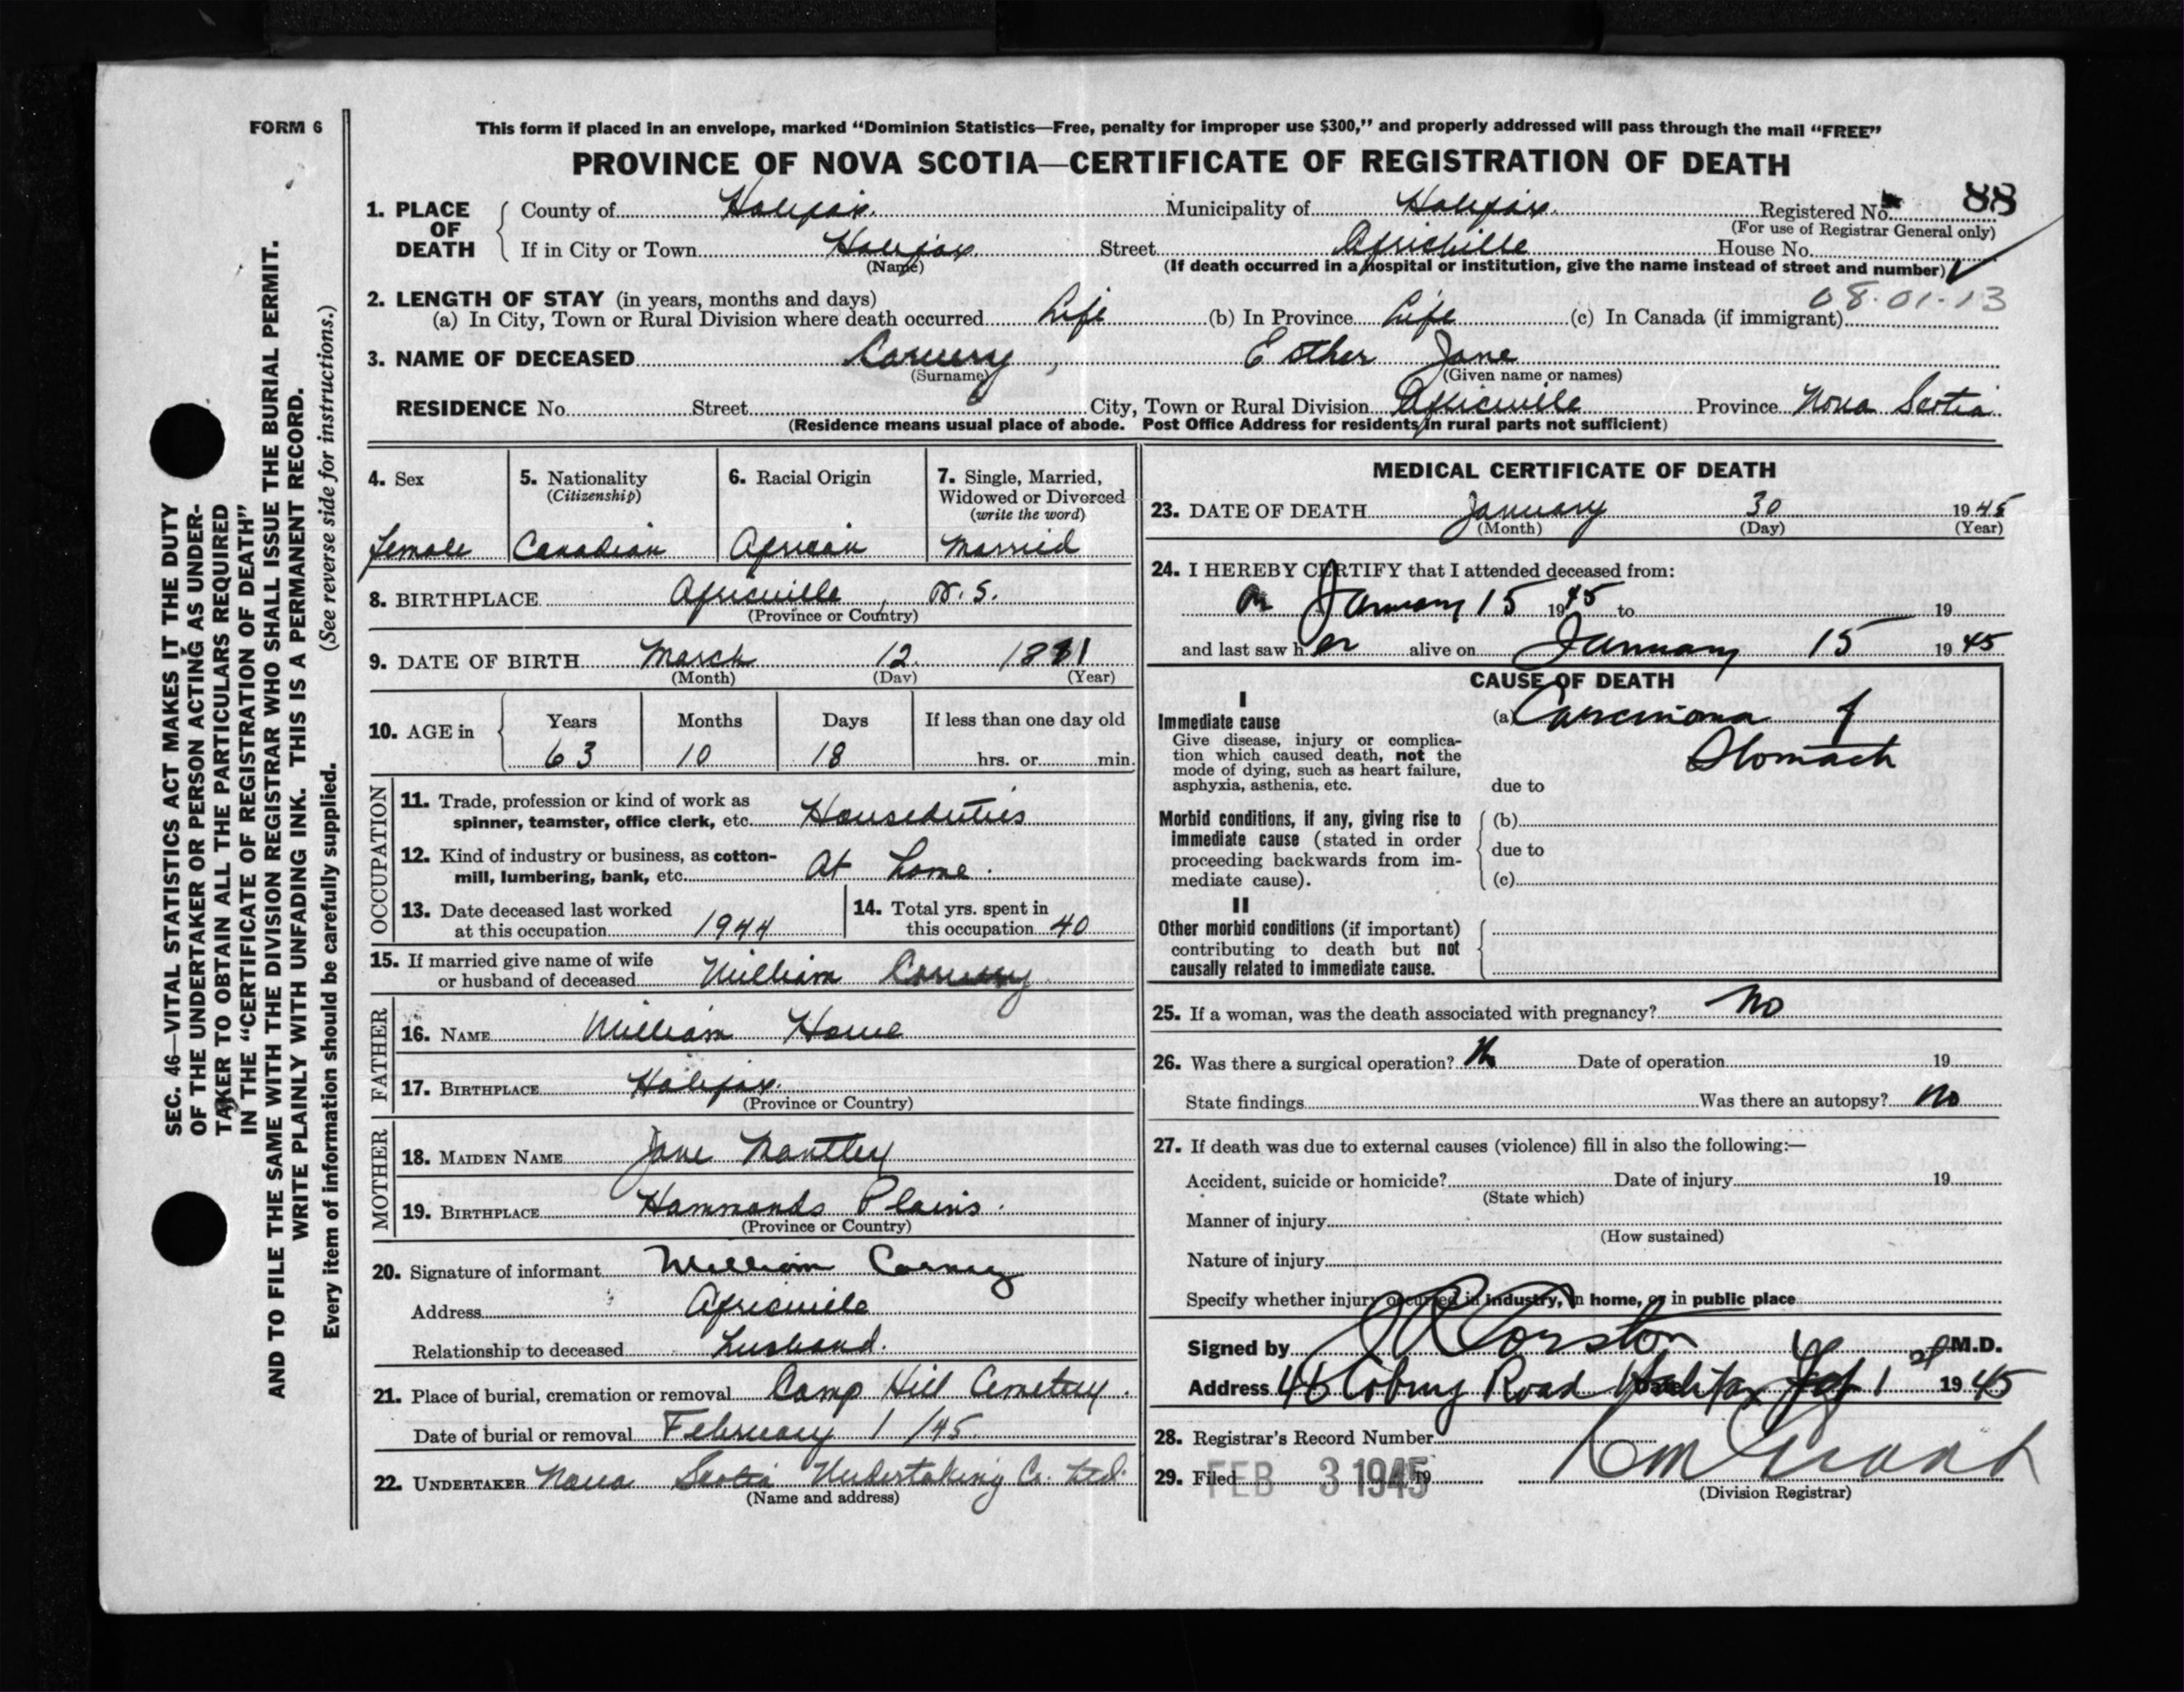 FORM 6
This form if placed in an envelope, marked “Dominion Statistics—Free, penalty for improper use $300,” and properly addressed will pass through the mail “FREE”
PROVINCE OF NOVA SCOTIA—CERTIFICATE OF REGISTRATION OF DEATH
88
1. PLACE OF DEATH County of Halifax Municipality of Halifax Registered No.
(For use of Registrar General only)
If in City or Town Halifax Street Africville House No.
(Name) (If death occurred in a hospital or institution, give the name instead of street and number)
2. LENGTH OF STAY (in years, months and days) 08-01-13
(a) In City, Town or Rural Division where death occurred Life (b) In Province Life (c) In Canada (if immigrant)
3. NAME OF DECEASED Carvery, Esther Jane
(Surname) (Given name or names)
RESIDENCE No. Street City, Town or Rural Division Africville Province Nova Scotia
(Residence means usual place of abode. Post Office Address for residents in rural parts not sufficient)
4. Sex 5. Nationality 6. Racial Origin 7. Single, Married,
(Citizenship) Widowed or Divorced
(write the word)
Female Canadian African Married
8. BIRTHPLACE Africville, N.S.
(Province or Country)
9. DATE OF BIRTH March 12 1881
(Month) (Day) (Year)
10. AGE in Years Months Days If less than one day old
63 10 18 hrs. or min.
OCCUPATION
11. Trade, profession or kind of work as
spinner, teamster, office clerk, etc. Houseduties
12. Kind of industry or business, as cotton-
mill, lumbering, bank, etc. At home.
13. Date deceased last worked 14. Total yrs. spent in
at this occupation 1944 this occupation 40
15. If married give name of wife
or husband of deceased William Carvery
FATHER
16. NAME William Howe
17. BIRTHPLACE Halifax.
(Province or Country)
MOTHER
18. MAIDEN NAME Jane Mantley
19. BIRTHPLACE Hammonds Plains.
(Province or Country)
20. Signature of informant William
Address Africville
Relationship to deceased husband.
21. Place of burial, cremation or removal Camp Hill Cemetery.
Date of burial or removal February 1 /45.
22. UNDERTAKER Nova Scotia Undertaking Co. Ltd.
(Name and address)
MEDICAL CERTIFICATE OF DEATH
23. DATE OF DEATH January 30 1945
(Month) (Day) (Year)
24. I HEREBY CERTIFY that I attended deceased from:
on January 15 1945 to 19
and last saw her alive on January 15 1945
CAUSE OF DEATH
I
Immediate cause (a) Carcinoma of
Give disease, injury or complica- Stomach
tion which caused death, not the
mode of dying, such as heart failure,
asphyxia, asthenia, etc. due to
Morbid conditions, if any, giving rise to (b)
immediate cause (stated in order due to
proceeding backwards from im-
mediate cause). (c)
II
Other morbid conditions (if important)
contributing to death but not
causally related to immediate cause.
25. If a woman, was the death associated with pregnancy? No
26. Was there a surgical operation? No Date of operation 19
State findings Was there an autopsy? No
27. If death was due to external causes (violence) fill in also the following:—
Accident, suicide or homicide? Date of injury 19
(State which)
Manner of injury
(How sustained)
Nature of injury
Specify whether injury occurred in industry, in home, or in public place
Signed by Corston M.D.
Address 46 Coburg Road Halifax 1 1945
28. Registrar's Record Number
29. Filed FEB 3 1945 19
(Division Registrar)
SEC. 46—VITAL STATISTICS ACT MAKES IT THE DUTY
OF THE UNDERTAKER OR PERSON ACTING AS UNDER-
TAKER TO OBTAIN ALL THE PARTICULARS REQUIRED
IN THE “CERTIFICATE OF REGISTRATION OF DEATH”
AND TO FILE THE SAME WITH THE DIVISION REGISTRAR WHO SHALL ISSUE THE BURIAL PERMIT.
WRITE PLAINLY WITH UNFADING INK. THIS IS A PERMANENT RECORD.
Every item of information should be carefully supplied. (See reverse side for instructions.)